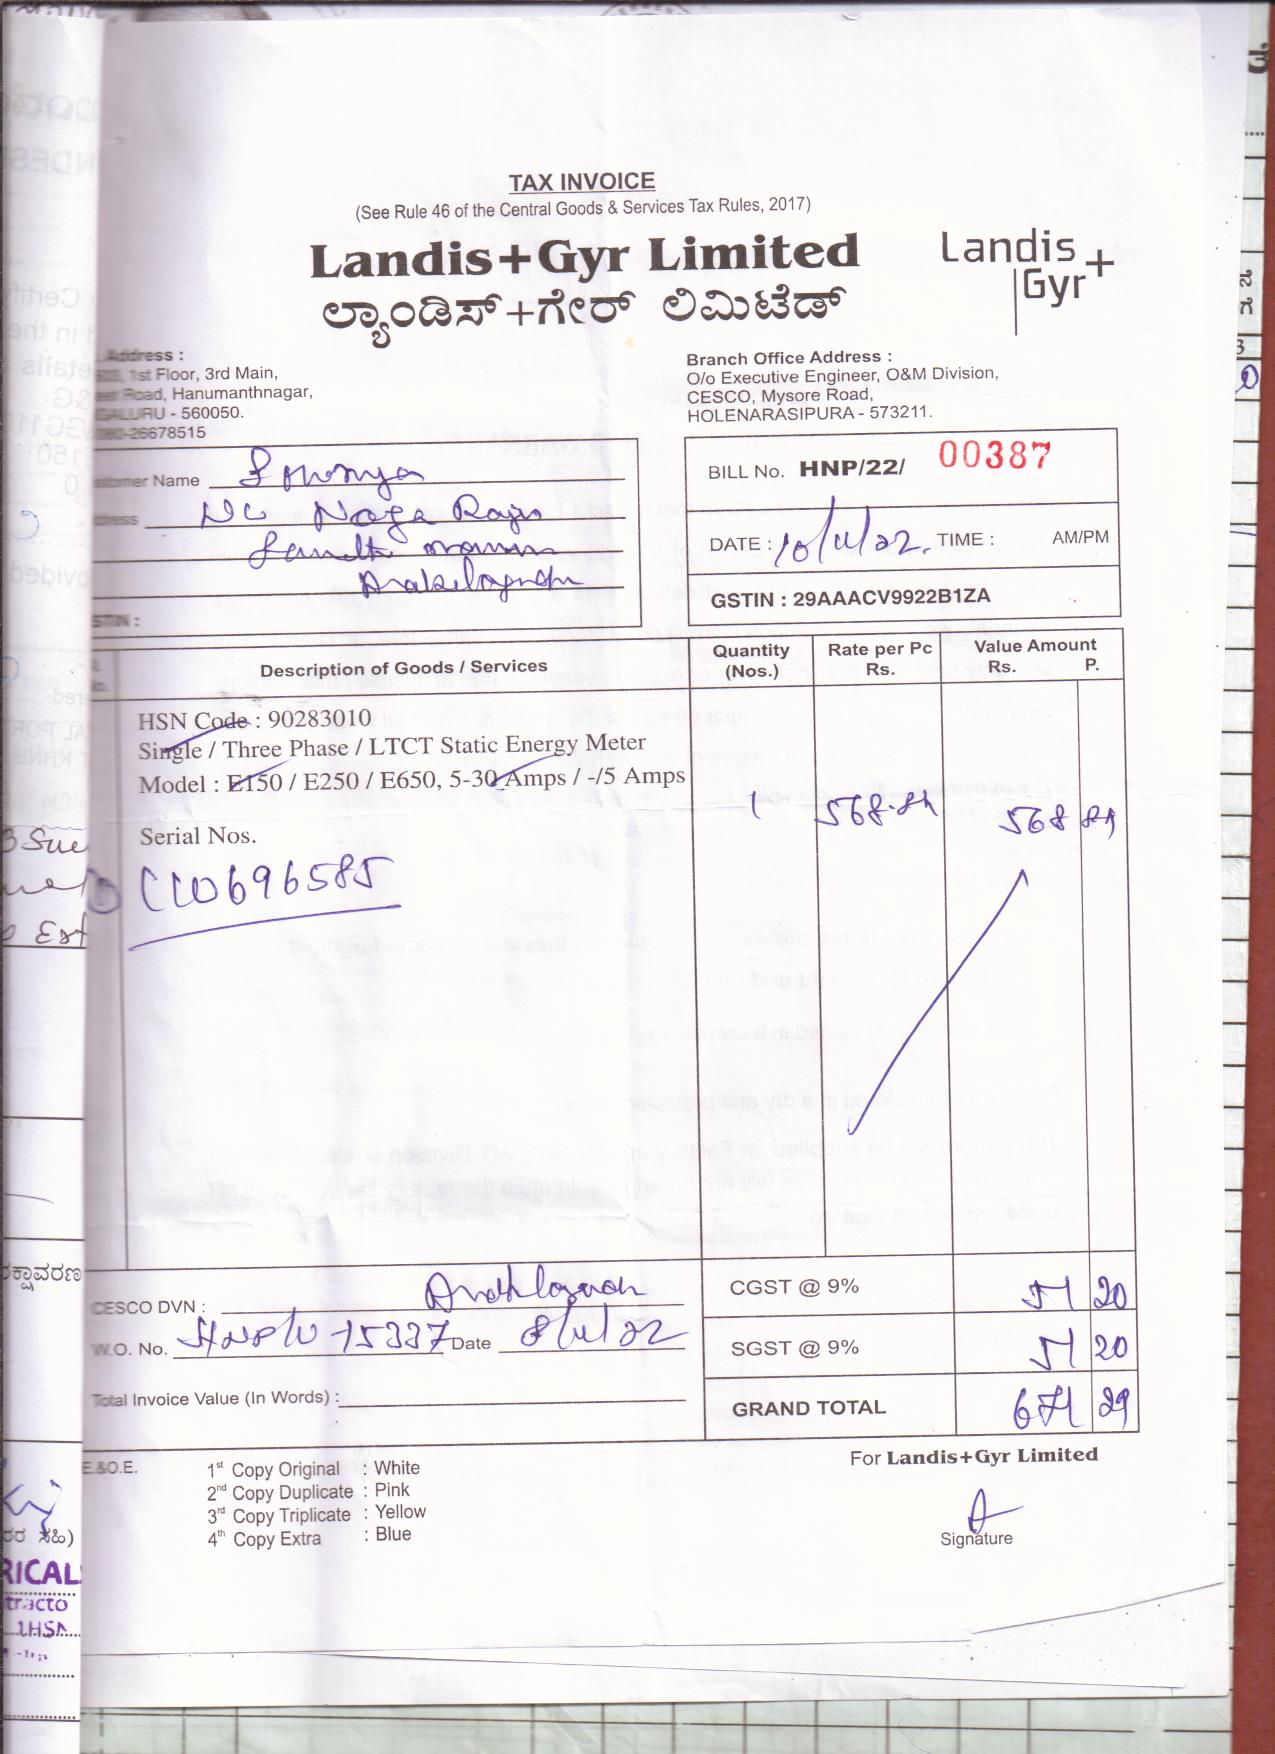 TAX INVOICE
(See Rule 46 of the Central Goods & Services Tax Rules, 2017)
Landis+Gyr Limited
ಲ್ಯಾಂಡಿಸ್+ಗೇರ್ ಲಿಮಿಟೆಡ್
Landis
Gyr+
Address :
1st Floor, 3rd Main,
Road, Hanumanthnagar,
GALURU - 560050.
080-26678515
Branch Office Address :
O/o Executive Engineer, O&M Division,
CESCO, Mysore Road,
HOLENARASIPURA - 573211.
Customer Name Sowmya
Address Naga Raju
GSTIN :
BILL No. HNP/22/ 00387
DATE : 10/11/22. TIME : AM/PM
GSTIN : 29AAACV9922B1ZA
Description of Goods / Services
Quantity (Nos.)
Rate per Pc Rs.
Value Amount Rs. P.
HSN Code : 90283010
Single / Three Phase / LTCT Static Energy Meter
Model : E150 / E250 / E650, 5-30 Amps / -/5 Amps
1 568.89 568 89
Serial Nos.
696585
CESCO DVN :
W.O. No. 15337 Date 8/11/22
Total Invoice Value (In Words) :
CGST @ 9% 51 20
SGST @ 9% 51 20
GRAND TOTAL 671 29
E.&O.E.
1st Copy Original : White
2nd Copy Duplicate : Pink
3rd Copy Triplicate : Yellow
4th Copy Extra : Blue
For Landis+Gyr Limited
Signature